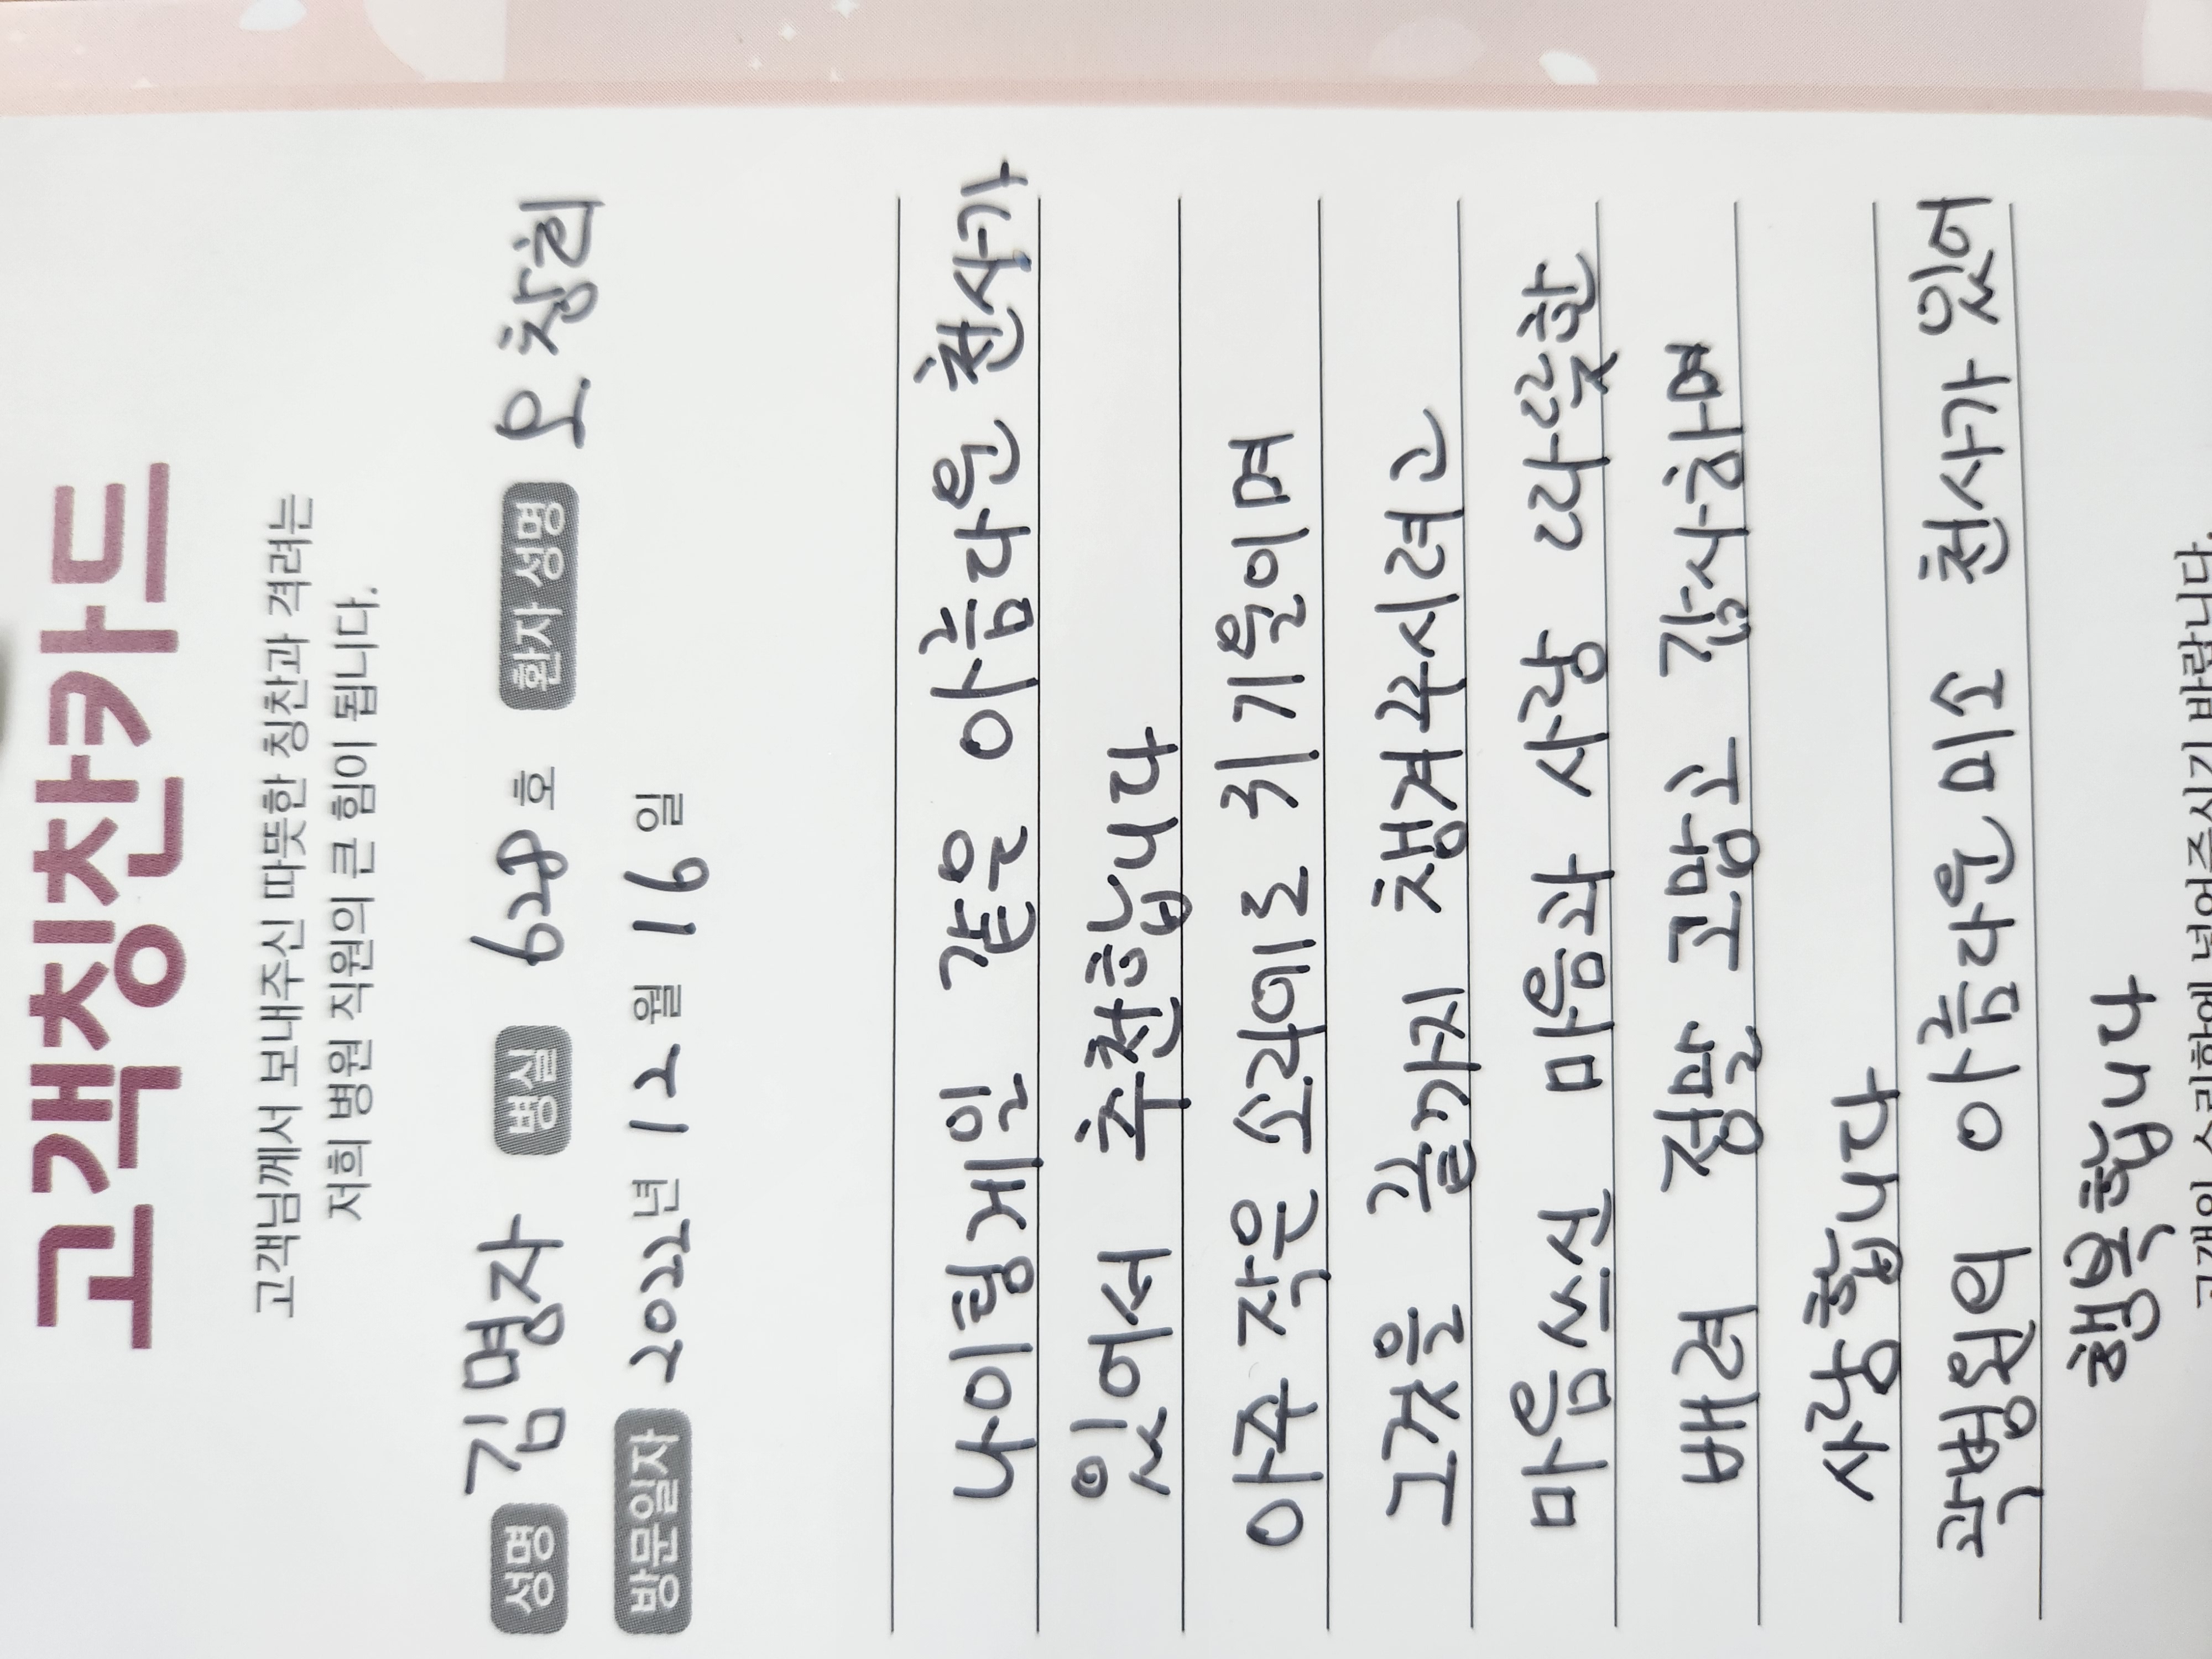 고객칭찬카드
고객님께서 보내주신 따뜻한 칭찬과 격려는
저희 병원 직원의 큰 힘이 됩니다.
성명 김명자 병실 628호 환자 성명 오창현
방문일자 2022년 12월 16일
나이팅게일 같은 아름다운 천사가
있어서 추천합니다
아주 작은 소리에도 귀기울이며
그것을 끝까지 챙겨주시려고
마음쓰신 마음과 사랑 따뜻한
배려 정말 고맙고 감사하며
사랑합니다
곽병원의 아름다운 미소 천사가 있어
행복합니다
고객의 소리함에 넣어주시기 바랍니다.